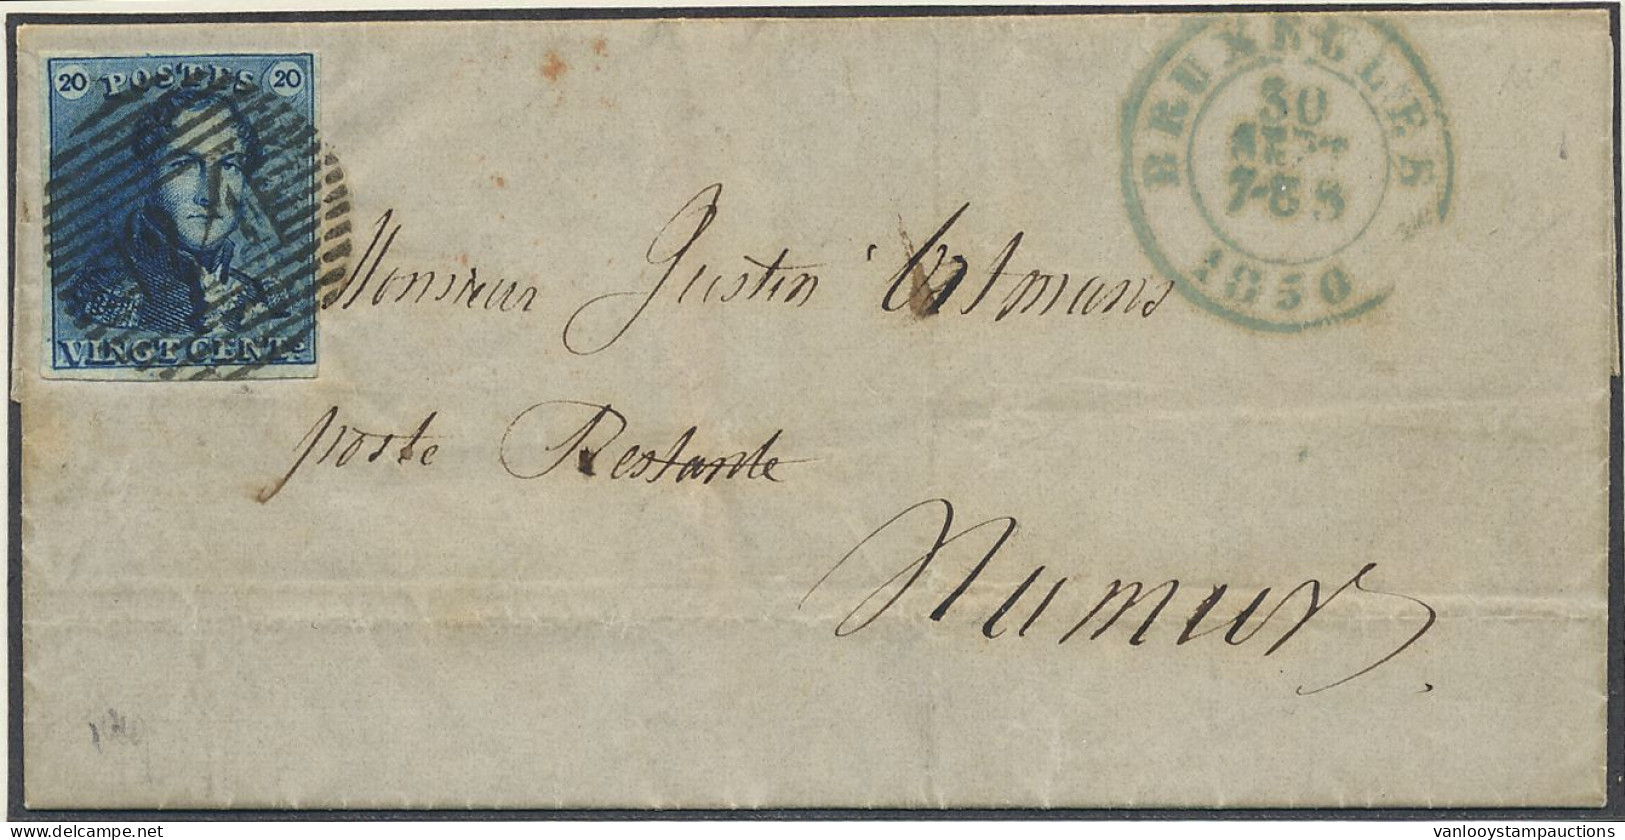 20 POSTES 20
VINGT CENTS.
BRUXELLES
30
SEPT
7-8 S
1850
Monsieur Justin Ortmans
poste Restante
Namur.
www.delcampe.net
vanlooystampauctions